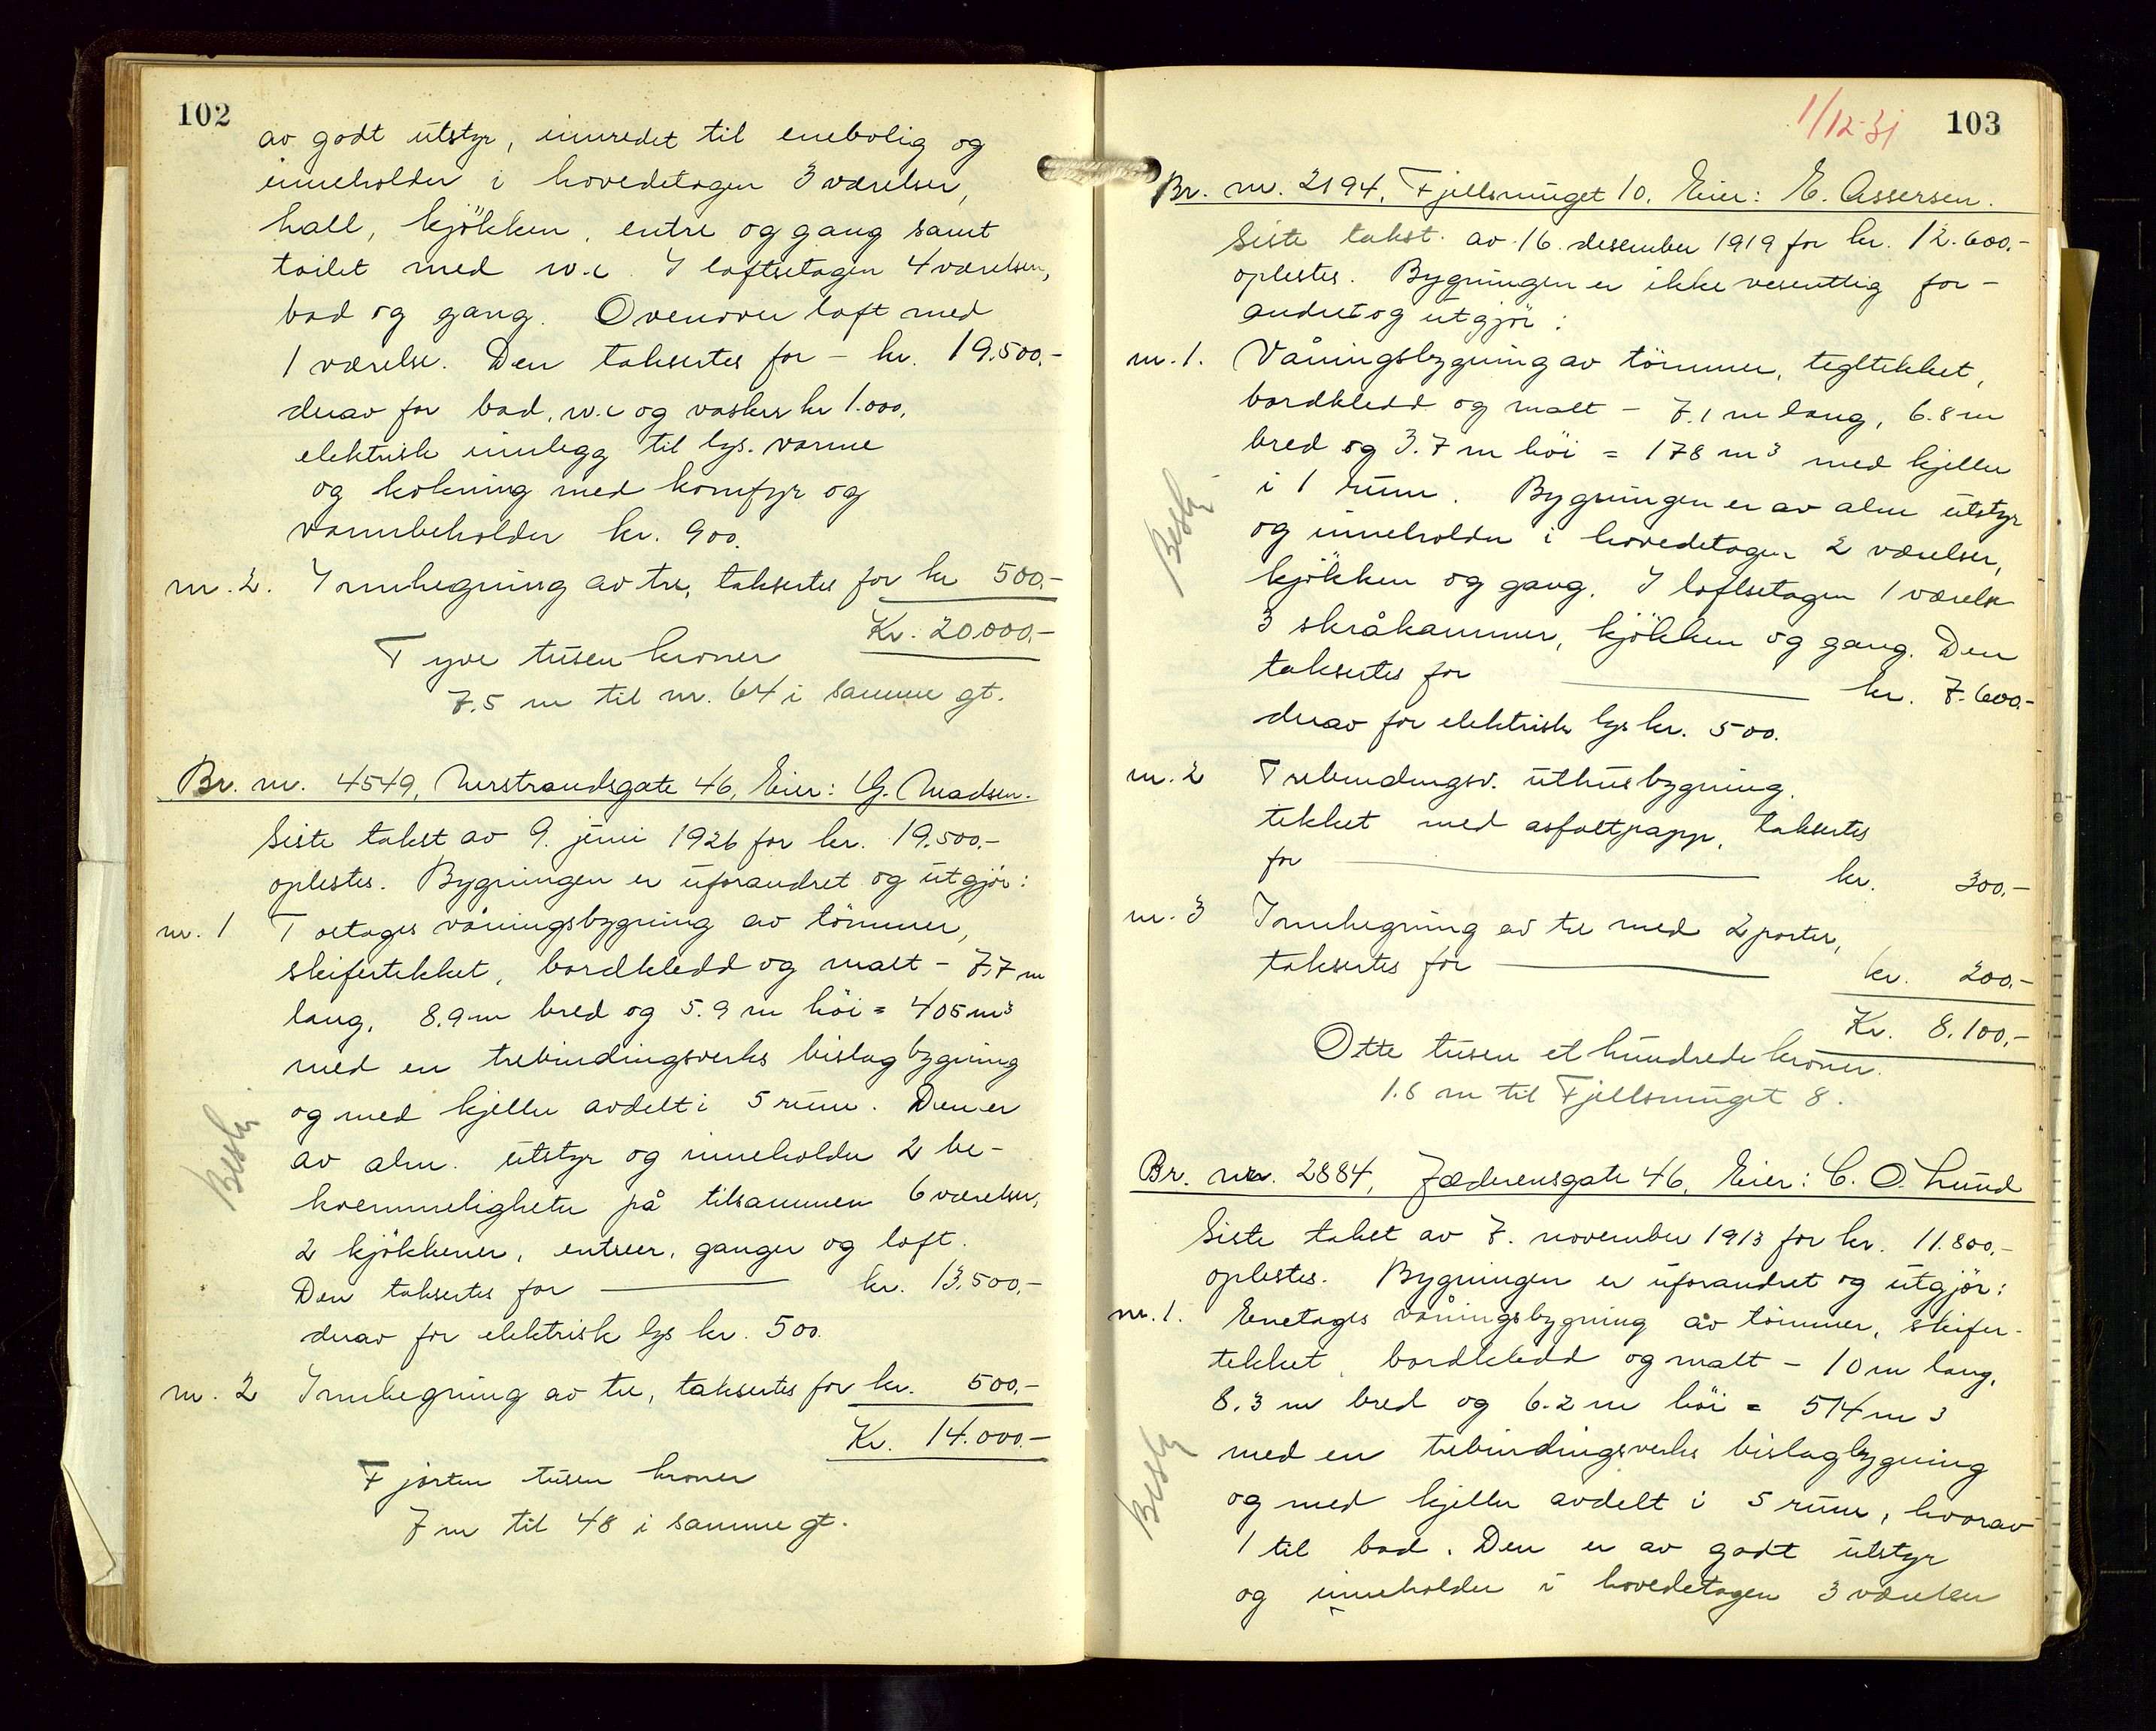 102
av godt utstyr, innredet til enebolig og
inneholder i hovedetagen 3 værelser,
hall, kjökken, entre og gang samt
toilet med w.c. I loftsetagen 4 værelser,
bad og gang. Ovenover loft med
1 værelse. Den taksertes for - kr. 19.500.-
derav for bad, w.c og vaskus kr 1.000,
elektrisk innlegg til lys. varme
og kokning med komfyr og
varmbeholder kr. 900.
nr. 2. Innhegning av tre, taksertes for kr 500.-
Kr. 20.000.-
Tyve tusen kroner
7.5 m til nr. 64 i samme gt.
Br. nr. 4549, Nerstrandsgate 46, Eier: G. Madsen.
Siste takst av 9. juni 1926 for kr. 19.500.-
oplestes. Bygningen er uforandret og utgjör:
nr. 1 Toetages våningsbygning av tömmer,
skifertekket, bordkledd og malt - 7,7 m
lang, 8.9 m bred og 5.9 m höi = 405 m³
med en trebindingsverks bislagbygning
og med kjeller avdelt i 5 rum. Den er
av alm. utstyr og inneholder 2 be-
kvemmeligheter på tilsammen 6 værelser,
2 kjökkener, entreer, ganger og loft.
Den taksertes for kr. 13.500.-
derav for elektrisk lys kr. 500.
nr. 2 Innhegning av tre, taksertes for kr. 500.-
Kr. 14.000.-
Fjorten tusen kroner
7 m til 48 i samme gt.
1/12-31
103
Br. nr. 2194, Fjellsmuget 10. Eier: E. Assersen.
Siste takst av 16. desember 1919 for kr. 12.600.-
oplestes. Bygningen er ikke vesentlig for-
andret og utgjör:
nr. 1. Våningsbygning av tömmer, tegltekket,
bordkledd og malt - 7.1 m lang, 6.8 m
bred og 3.7 m höi = 178 m³ med kjeller
i 1 rum. Bygningen er av alm utstyr
og inneholder i hovedetagen 2 værelser,
kjökken og gang. I loftsetagen 1 værelse
3 skråkammer, kjökken og gang. Den
taksertes for kr. 7.600.-
derav for elektrisk lys kr. 500.
nr. 2 Trebindingsv. uthusbygning,
tekket med asfaltpapp, taksertes
for kr. 300.-
nr. 3 Innhegning av tre med 2 porter,
taksertes for kr. 200.-
Kr. 8.100.-
Otte tusen et hundrede kroner.
1.8 m til Fjellsmuget 8.
Br. nr. 2884, Jæderensgate 46, Eier: C. O. Lund
Siste takst av 7. november 1913 for kr. 11.800.-
oplestes. Bygningen er uforandret og utgjör:
nr. 1. Enetages våningsbygning av tömmer, skifer-
tekket, bordkledd og malt - 10 m lang,
8.3 m bred og 6.2 m höi = 514 m³
med en trebindingsverks bislagbygning
og med kjeller avdelt i 5 rum, hvorav
1 til bad. Den er av godt utstyr
og inneholder i hovedetagen 3 værelser